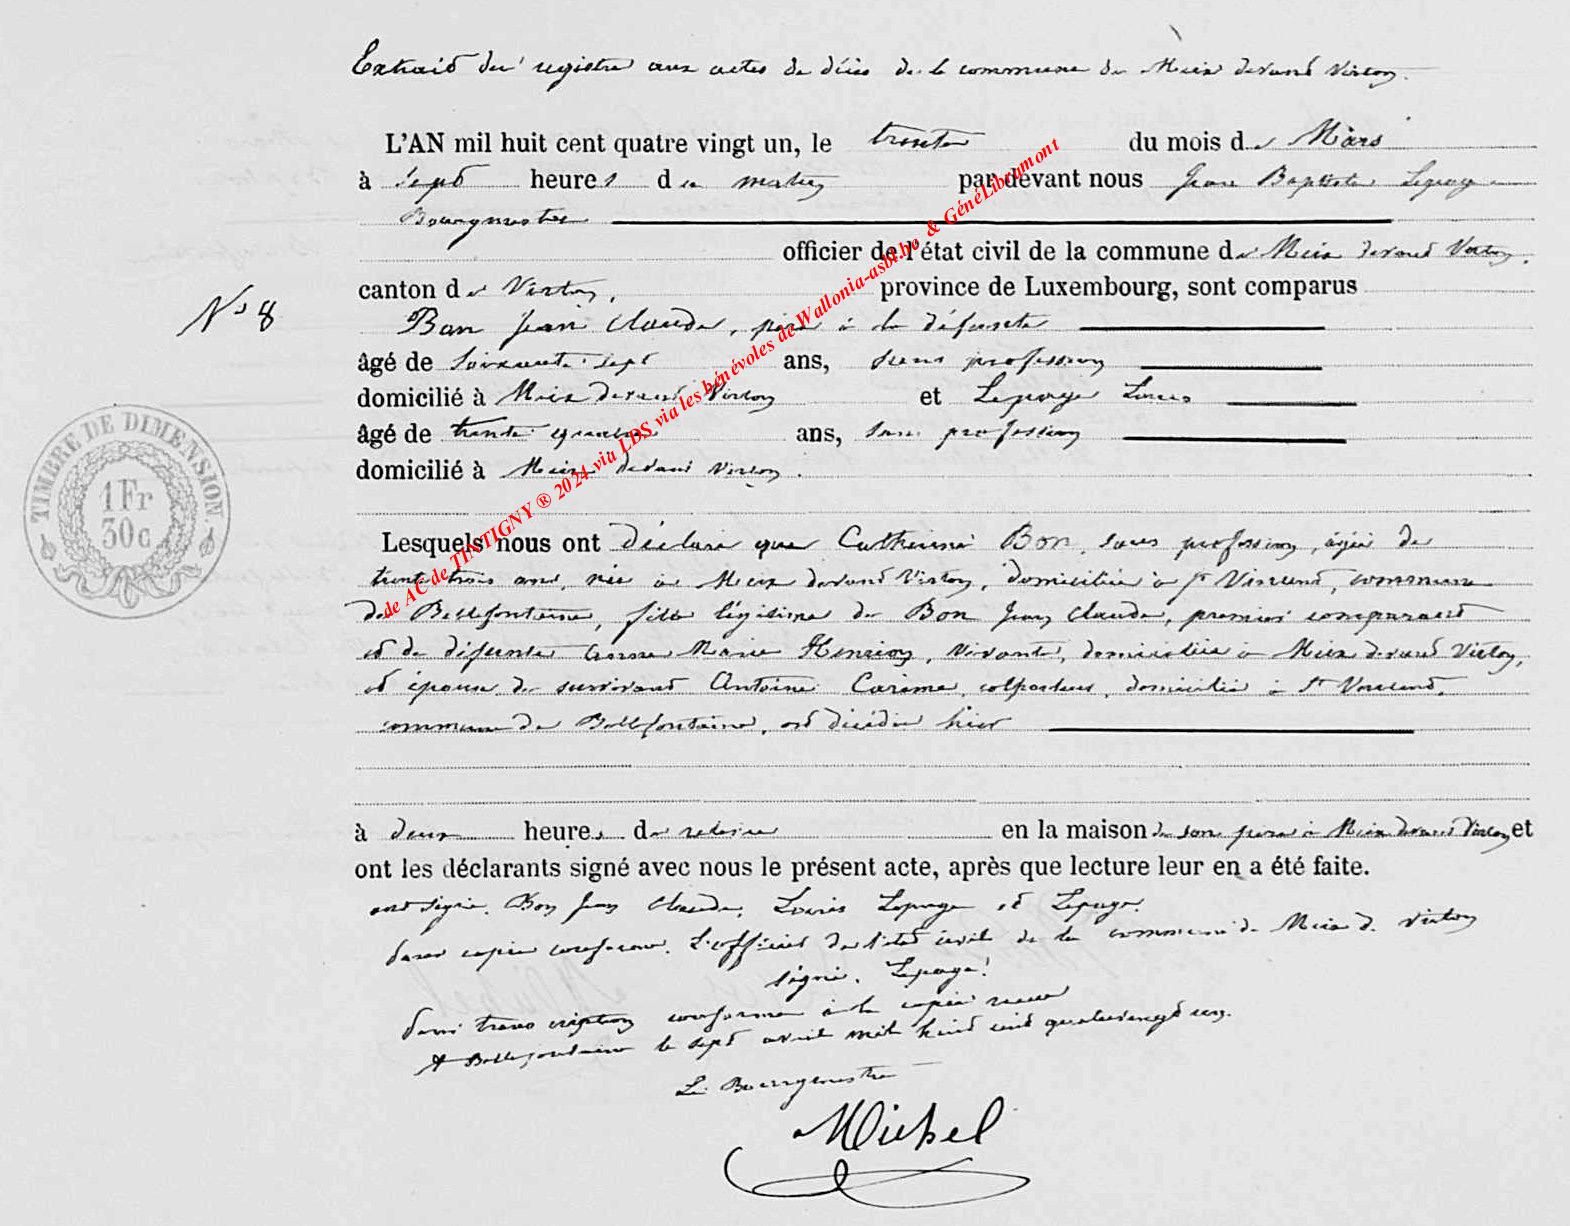 Extrait du registre aux actes de décès de la commune de Meix devant Virton.
L'AN mil huit cent quatre vingt un, le trente du mois de Mars
à sept heures du matin par devant nous Jean Baptiste Lepage
Bourgmestre
officier de l'état civil de la commune de Meix devant Virton,
canton de Virton, province de Luxembourg, sont comparus
N° 8
Bon Jean Claude, père à la défunte
âgé de soixante-sept ans, sans profession
domicilié à Meix devant Virton et Lepage Louis
âgé de trente quatre ans, sans profession
domicilié à Meix devant Virton.
TIMBRE DE DIMENSION.
1 Fr
30 c
Lesquels nous ont déclaré que Catherine Bon, sans profession, âgée de
trente trois ans, née à Meix devant Virton, domiciliée à St Vincent, commune
de Bellefontaine, fille légitime de Bon Jean Claude, premier comparant
et de défunte Marie Henrion, vivante, domiciliée à Meix devant Virton,
et épouse de survivant Antoine Carême, colporteur, domicilié à St Vincent,
commune de Bellefontaine, est décédée hier
à deux heures de relevée en la maison de son père à Meix devant Virton et
ont les déclarants signé avec nous le présent acte, après que lecture leur en a été faite.
ont signé. Bon Jean Claude, Louis Lepage et Lepage.
Pour copie conforme. L'officier de l'état civil de la commune de Meix d. Virton
signé. Lepage.
Pour transcription conforme à la copie reçue
A Bellefontaine le sept avril mil huit cent quatrevingt un.
Le Bourgmestre
Michel
de AC de TINTIGNY ® 2024 via LDS via les bénévoles de Wallonia-asbl.be & GénéLibramont